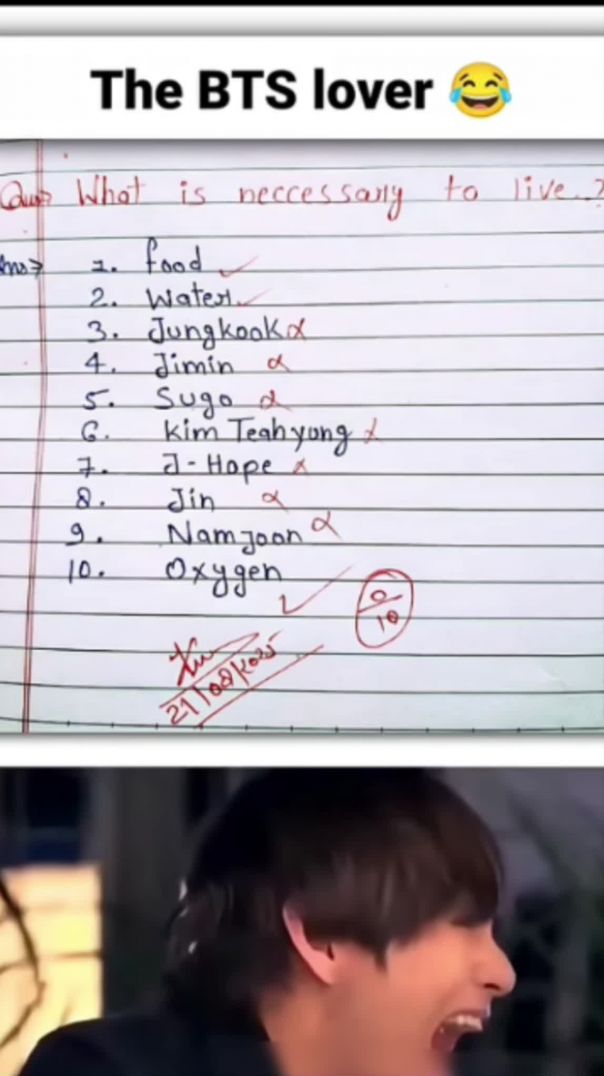 The BTS lover 😂
Ques What is neccessary to live..?
Ans→ 1. food ✓
2. Water ✓
3. Jungkook ✗
4. Jimin ✗
5. Sugo ✗
6. Kim Teahyong ✗
7. J-Hope ✗
8. Jin ✗
9. Namjoon ✗
10. Oxygen ✓
0/10
21/08/2025